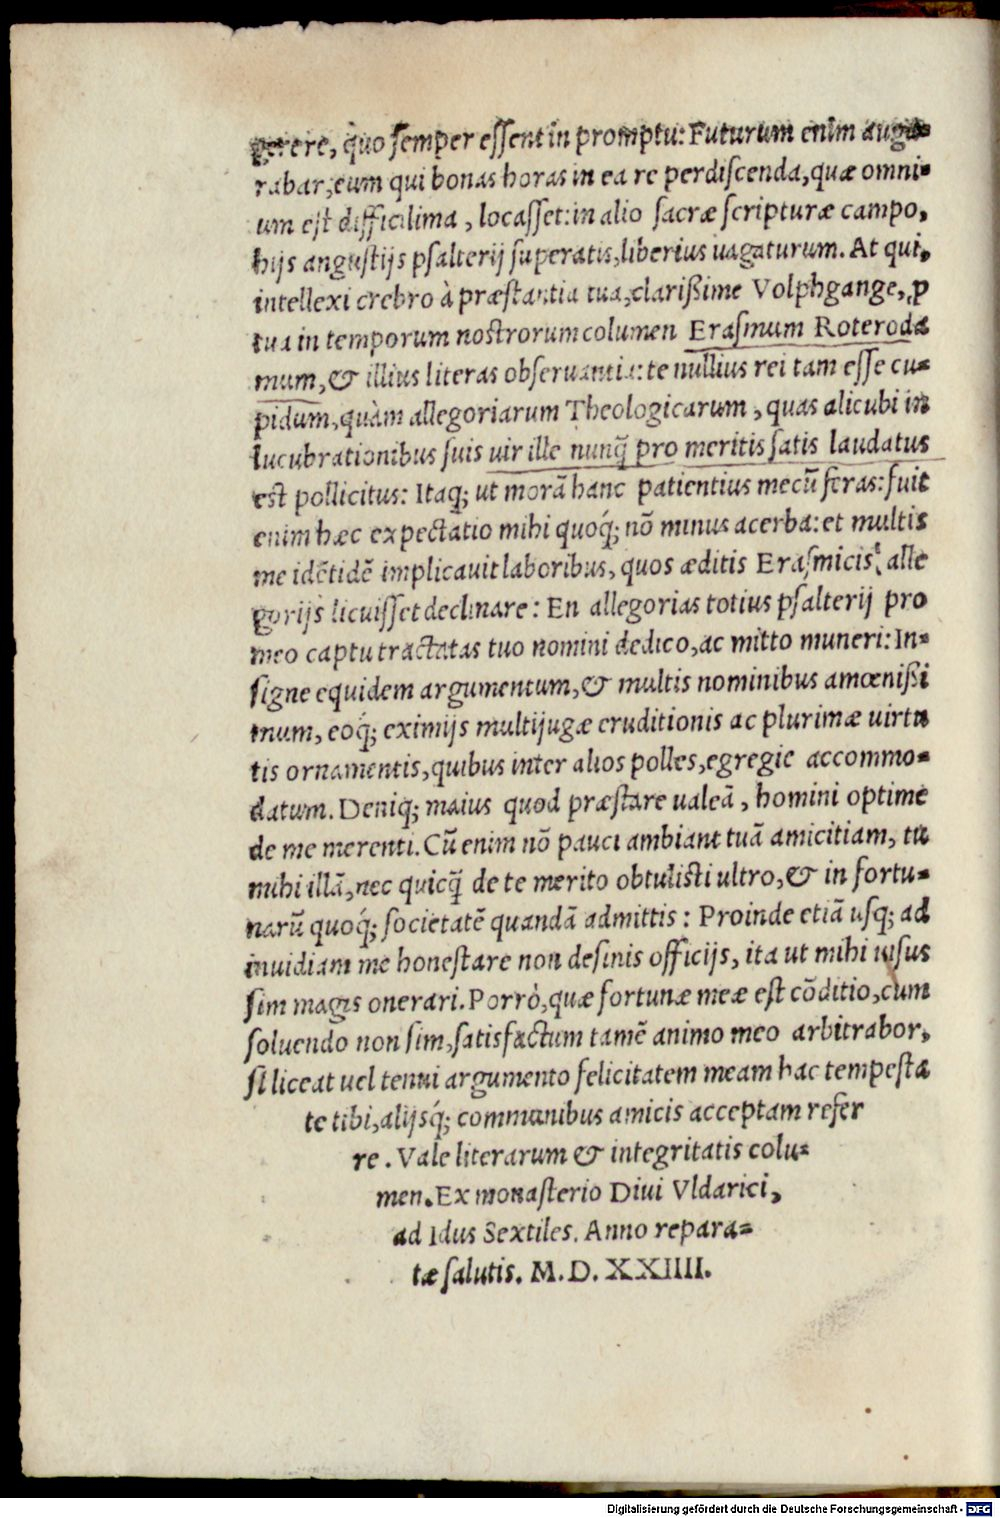 gerere, quo semper essent in promptu: Futurum enim augu-
rabar, eum qui bonas horas in ea re perdiscenda, quæ omni-
um est difficilima, locasset: in alio sacræ scripturæ campo,
hijs angustijs psalterij superatis, liberius uagaturum. At qui,
intellexi crebro à præstantia tua, clarißime Volphgange, ꝓ
tua in temporum nostrorum columen Erasmum Roteroda
mum, & illius literas obseruantia: te nullius rei tam esse cu-
pidum, quàm allegoriarum Theologicarum, quas alicubi in
lucubrationibus suis uir ille nunq̃ pro meritis satis laudatus
est pollicitus: Itaq; ut morā hanc patientius mecū feras: fuit
enim hæc expectatio mihi quoq́; nō minus acerba: et multis
me idētidē implicauit laboribus, quos æditis Erasmicis alle
gorijs licuisset declinare: En allegorias totius psalterij pro
meo captu tractatas tuo nomini dedico, ac mitto muneri: In-
signe equidem argumentum, & multis nominibus amœnißi
mum, eoq́; eximijs multijugæ eruditionis ac plurimæ uirtu
tis ornamentis, quibus inter alios polles, egregie accommo-
datum. Deniq; maius quod præstare ualeā, homini optime
de me merenti. Cū enim nō pauci ambiant tuā amicitiam, tu
mihi illā, nec quicq̃ de te merito obtulisti ultro, & in fortu-
narū quoq́; societatē quandā admittis: Proinde etiā usq; ad
inuidiam me honestare non desinis officijs, ita ut mihi uisus
sim magis onerari. Porrò, quæ fortunæ meæ est cōditio, cum
soluendo non sim, satisfactum tamē animo meo arbitrabor,
si liceat uel tenui argumento felicitatem meam hac tempesta
te tibi, alijsq́; communibus amicis acceptam refer
re. Vale literarum & integritatis colu-
men. Ex monasterio Diui Vldarici,
ad Idus Sextiles. Anno repara-
tæ salutis. M. D. XXIIII.
Digitalisierung gefördert durch die Deutsche Forschungsgemeinschaft - DFG